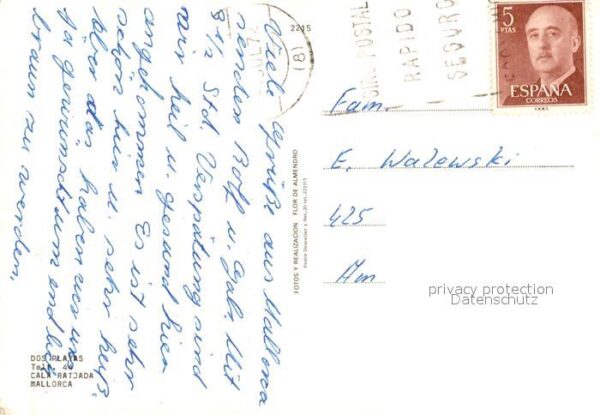 Viele Grüße aus Mallorca
senden Rolf u. Gabi. Mit
8 1/2 Std. Verspätung sind
wir heil u. gesund hier
angekommen. Es ist sehr
schön hier u. sehr heiß.
Aber das haben wir uns
ja gewünscht um endlich
braun zu werden.
DOS PLAYAS
CALA RATJADA
MALLORCA
2215
FOTOS Y REALIZACION FLOR DE ALMENDRO
(8)
GIRO POSTAL
RAPIDO
SEGURO
5
PTAS
ESPAÑA
CORREOS
Fam.
E. Walewski
425
privacy protection
Datenschutz